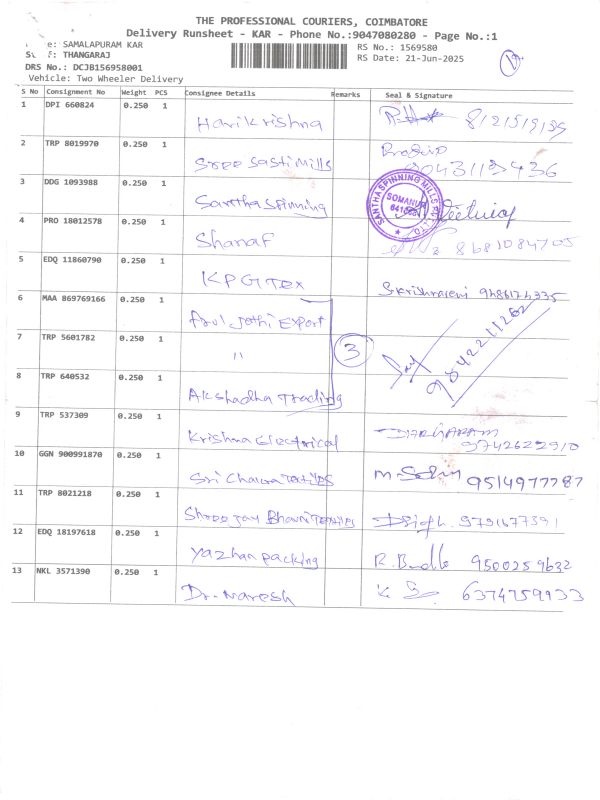 THE PROFESSIONAL COURIERS, COIMBATORE
Delivery Runsheet - KAR - Phone No.:9047080280 - Page No.:1
: SAMALAPURAM KAR
RS No.: 1569580
: THANGARAJ
RS Date: 21-Jun-2025
DRS No.: DCJB156958001
Vehicle: Two Wheeler Delivery
S No Consignment No Weight PCS Consignee Details Remarks Seal & Signature
1 DPI 660824 0.250 1 Harikrishna 8121519135
2 TRP 8019970 0.250 1 Sree Sasti Mills Pradeep
3 DDG 1093988 0.250 1 Santha Spinning
SANTHA SPINNING MILLS
SOMANUR
4 PRO 18012578 0.250 1 Sharaf
5 EDQ 11860790 0.250 1 KPG Tex
6 MAA 869769166 0.250 1 Arul Jothi Export
7 TRP 5601782 0.250 1 " 3 9842211262
8 TRP 640532 0.250 1 Akshadha Trading
9 TRP 537309 0.250 1 Krishna Electrical 9742622910
10 GGN 900991870 0.250 1 Sri Chakra Textiles 9514977787
11 TRP 8021218 0.250 1 Shree Jay Bhavani Textiles 9791677391
12 EDQ 18197618 0.250 1 Yazhan packing 9500259632
13 NKL 3571390 0.250 1 Dr. Naresh 6374759933